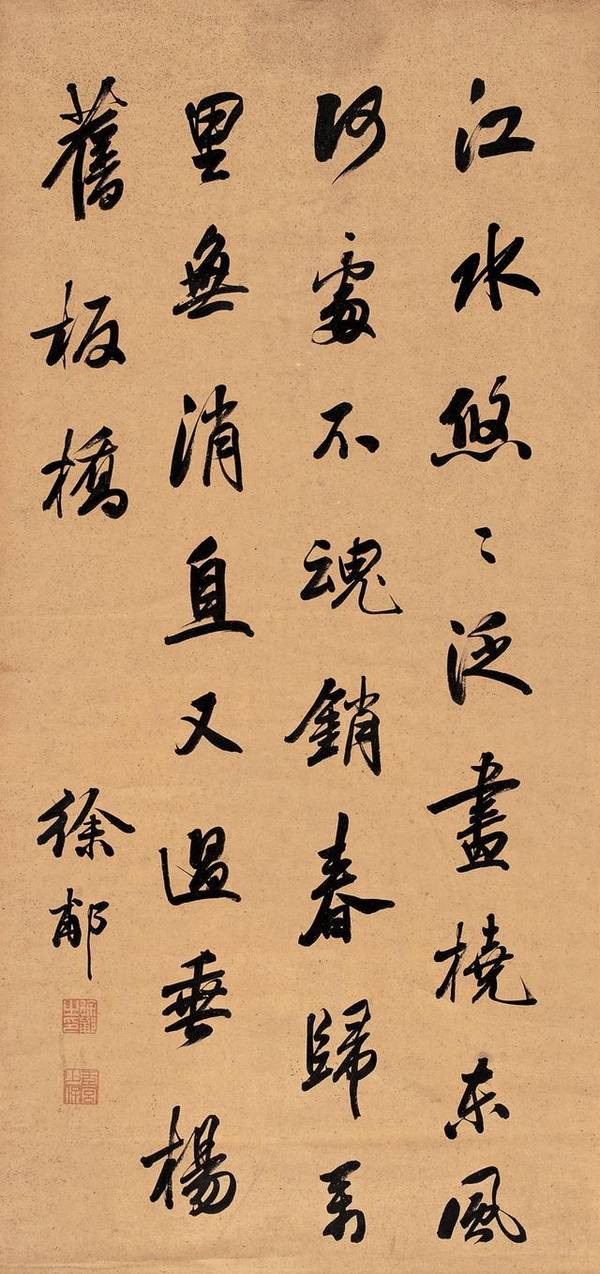 江水悠〻泛畫橈東風
何處不魂銷春歸萬
里無消息又過垂楊
舊板橋
徐郙
徐郙之印